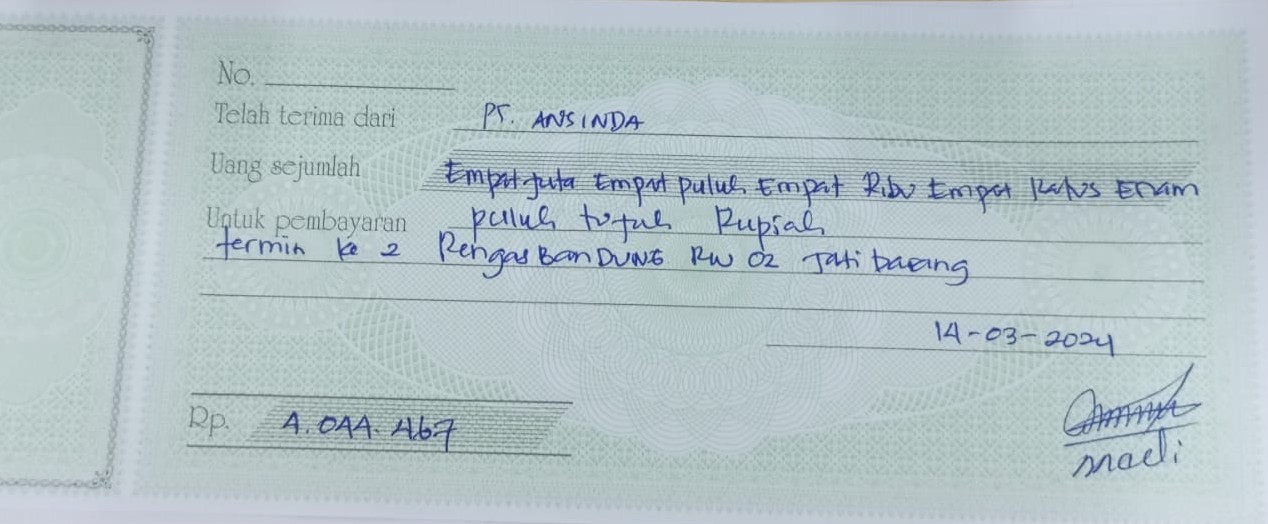 No.
Telah terima dari PT. ANSINDA
Uang sejumlah Empat juta Empat puluh Empat Ribu Empat Ratus Enam
Untuk pembayaran puluh tujuh Rupiah
termin ke 2 RengasBanDUNG RW 02 Jatibarang
14-03-2024
Rp. 4.044.467
maeli